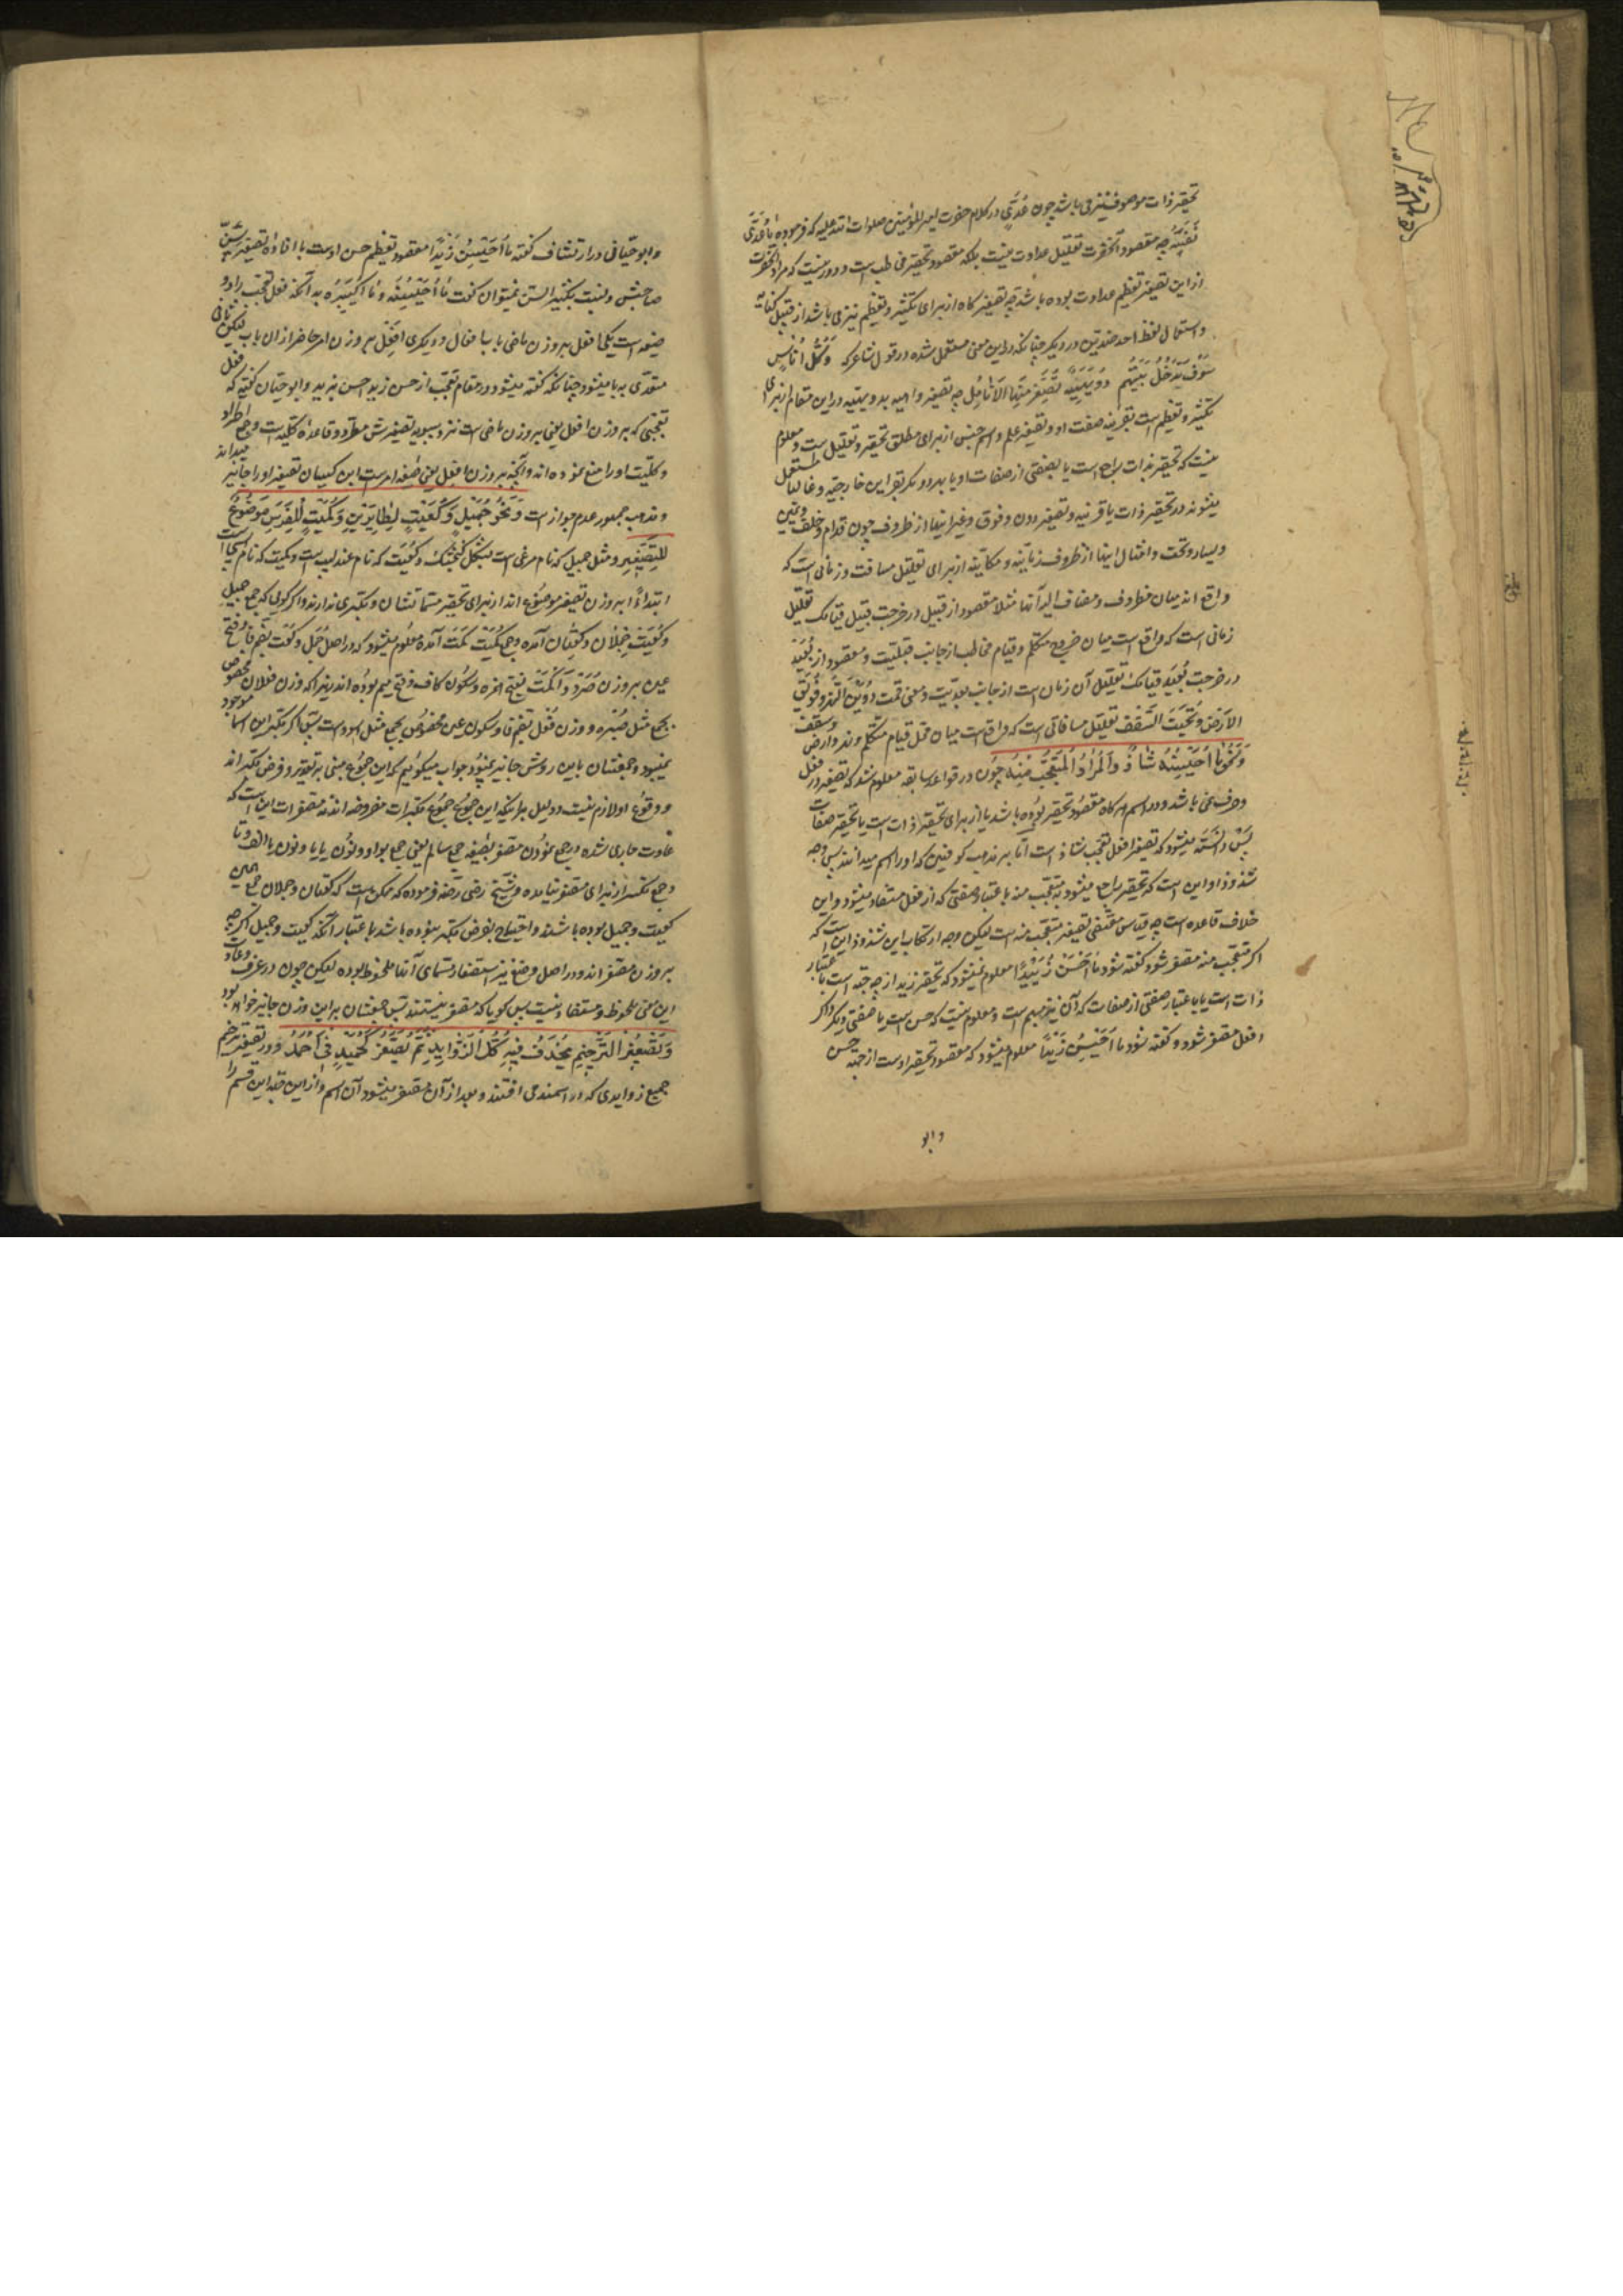 تحقیر ذات موصوف نیز می باشد چون عُدَیّ در کلام حضرت امیر المؤمنین صلوات الله علیه که فرموده یا عُدَیَّ
نَفْسِهِ چه مقصود آنحضرت تقلیل عداوت نیست بلکه مقصود تحقیر مخاطب است و دور نیست که مراد آنحضرت
از این تصغیر تعظیم عداوت بوده باشد چه تصغیر کاه از برای تکثیر و تعظیم نیز می باشد از قبیل کنایه
و استعمال لفظ احد ضدین در دیکر چنانکه در این معنی مستعمل شده در قول شاعر که وَکُلُّ اُنَاسٍ
سَوْفَ تَدْخُلُ بَیْنَهُم دُوَیْهِیَةٌ تَصْفَرُّ مِنْهَا الْاَنَامِلُ چه تصغیر داهیه بدویهیه در این مقام از برای
تکثیر و تعظیم است بقرینه صفت او و تصغیر علم و اسم جنس از برای مطلق تحقیر و تقلیل است و معلوم
نیست که تحقیر بذات راجع است یا بصفتی از صفات او یا بهر دو مکر بقراین خارجیه و غالبا مستعمل
میشوند در تحقیر ذات با قرینه و تصغیر دون و فوق و غیر اینها از ظروف چون قدام و خلف و یمین
و یسار و تحت و امثال اینها از ظروف زمانیه و مکانیه از برای تقلیل مسافت و زمانی است که
واقع اند میان مظروف و مضاف الیه آنها مثلا مقصود از قبیل در خرجت قبیل قیامک تقلیل
زمانی است که واقع است میان خروج متکلم و قیام مخاطب از جانب قبلیت و مقصود از بُعَیْد
در خرجت بُعَیْدَ قیامک تقلیل آن زمان است از جانب بعدیت و معنی قمت دُوَیْنَ النهر و فُوَیْقَ
الاَرْضِ وَ تُحَیْتَ السَّقْفِ تقلیل مسافاتی است که واقع است میان محل قیام متکلم و نهر و ارض و سقف
وَنَحْوُ مَا اُحَیْسِنَهُ شَاذٌّ وَالْمُرَادُ الْمُتَعَجَّبُ مِنْهُ چون در قواعد سابقه معلوم شد که تصغیر در فعل
و حرف نمی باشد و در اسم هر کاه مقصود تحقیر بوده باشد یا از برای تحقیر ذات است یا تحقیر صفات
پس دانسته میشود که تصغیر افعل تعجب شاذ است اما بر مذهب کوفیین که او را اسم میدانند پس وجه
شذوذ او این است که تحقیر راجع میشود به متعجب منه باعتبار صفتی که از فعل مستفاد میشود و این
خلاف قاعده است چه قیاس مقتضی تصغیر متعجب منه است لیکن وجه ارتکاب این شذوذ این است که
اکر متعجب منه مصغر شود و کفته شود مَا اَحْسَنَ زُیَیْدًا معلوم نمیشود که تحقیر زید از چه جهة است باعتبار
ذات است یا باعتبار صفتی از صفات که آن نیز مبهم است و معلوم نیست که حسن است یا صفتی دیکر و اکر
افعل مصغر شود و کفته شود ما اُحَیْسِنَ زَیْدًا معلوم میشود که مقصود تحقیر اوست از جهة حسن
و ابو
و ابو حیّانی در ارتشاف کفته ما اُحَیْسِنَ زَیْدًا مقصود تعظیم حسن اوست با افادهٔ تصغیر سن
صاحبش و نسبت بکبیر السن نمیتوان کفت مَا اُحَیْسِنَهُ وَ مَا اُکَیْبِرَهُ بد آنکه فعل تعجب را دو
صیغه است یکی افعل بر وزن ماضی باب افعال و دیکری افعل بر وزن امر حاضر از آن باب لیکن ثانی
متعدی به با میشود چنانکه کفته میشود در مقام تعجب از حسن زید احسن بزید و ابو حیان کفته که فعل
تعجبی که بر وزن افعل یعنی بر وزن ماضی است نزد سیبویه تصغیرش مطرد و قاعدهٔ کلیه است و جمعی اطراد
و کلیت او را منع نموده اند و آنچه بر وزن افعل یعنی صیغه امر است ابن کیسان تصغیر او را جایز میداند
و مذهب جمهور عدم جواز است وَ نَحْوُ جُمَیْلٍ وَ کُعَیْتٍ لِطَایِرَیْنِ وَ کُمَیْتٍ لِلْفَرَسِ مَوْضُوعٌ
لِلتَّصْغِیرِ و مثل جمیل که نام مرغی است بشکل کنجشک و کعیت که نام عندلیب است و کمیت که نام اسب است
ابتداءً بر وزن تصغیر موضوع اند از برای تحقیر مسمیاتشان و مکبری ندارند و اکر کوئی که جمع جمیل
و کعیت جملان و کعتان آمده و جمع کمیت کمت آمده معلوم میشود که در اصل جُمَل و کُعَت بضم فا و فتح
عین بر وزن صُرَد وَ اَکْمَت بفتح همزه و سکون کاف و فتح میم بوده اند زیرا که وزن فعلان مخصوص
بجمع مثل صُرَد و وزن فُعْل بضم فا و سکون عین مخصوص بجمع مثل اسود است پس اکر مکبر این اسما موجود
نمیبود جمعشان باین روش جایز نمیبود جواب میکوئیم که این جموع مبنی بر تقدیر و فرض مکبر اند
و وقوع او لازم نیست و دلیل بر اینکه این جموع جموع مکبرات مفروضه اند نه مصغرات این است که
عادت جاری شده در جمع نمودن مصغر بصیغه جمع سالم یعنی جمع بواو و نون یا یا و نون یا الف و تا
و جمع تکسیر از برای مصغر نیامده و شیخ رضی رَضَه فرموده که ممکن است که کعتان و جملان جمع همین
کعیت و جمیل بوده باشند و احتیاج بفرض مکبر نبوده باشد باعتبار آنکه کعیت و جمیل اکرچه
بر وزن مصغر اند و در اصل وضع نیز استصغار مسمای آنها ملحوظ بوده لیکن چون در عرف و عادت
این معنی ملحوظ و مستفاد نیست پس کویا که مصغر نیستند پس جمعشان بر این وزن جایز خواهد بود
وَ تَصْغِیْرُ التَّرْخِیْمِ یُحْذَفُ فِیْهِ کُلُّ الزَّوَایِدِ ثُمَّ یُصَغَّرُ کَحُمَیْدٍ فِی اَحْمَدَ و در تصغیر ترخیم
جمیع زوایدی که در اسمند می افتند و بعد از آن مصغر میشود آن اسم و از این جهة این قسم را